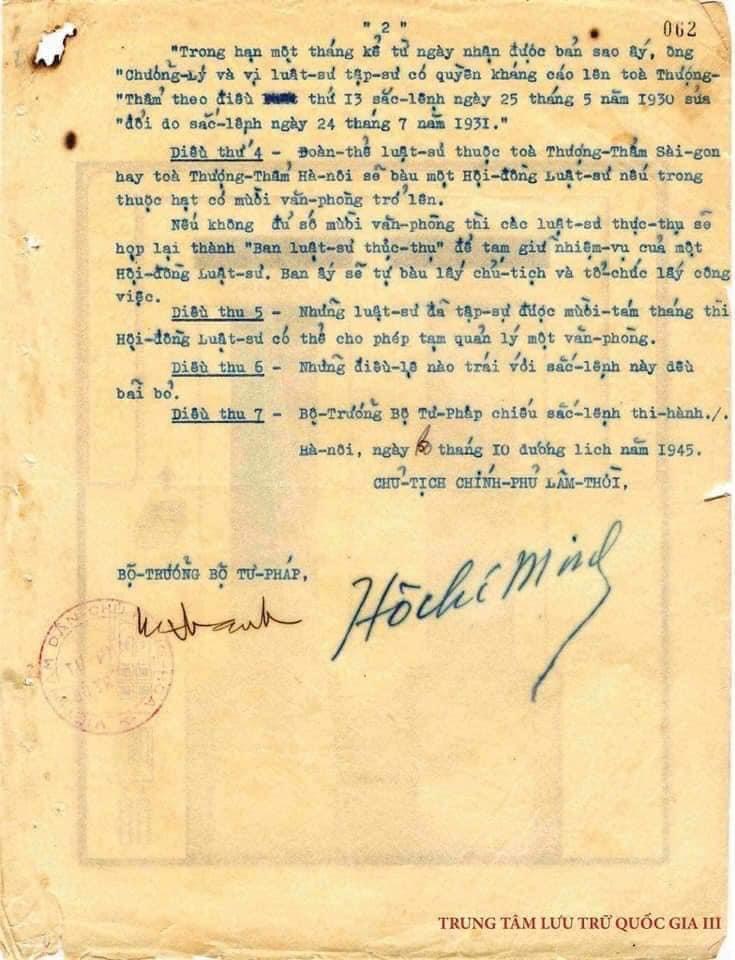 " 2 "
062
"Trong hạn một tháng kể từ ngày nhận được bản sao ấy, ông
"Chưởng-Lý và vị luật-sư tập-sự có quyền kháng cáo lên toà Thượng-
"Thẩm theo điều thứ 13 sắc-lệnh ngày 25 tháng 5 năm 1930 sửa
"đổi do sắc-lệnh ngày 24 tháng 7 năm 1931."
Điều thứ 4 - Đoàn-thể luật-sư thuộc toà Thượng-Thẩm Sài-gon
hay toà Thượng-Thẩm Hà-nôi sẽ bàu một Hội-đồng Luật-sư nếu trong
thuộc hạt có mười văn-phòng trở lên.
Nếu không đủ số mười văn-phòng thì các luật-sư thực-thụ sẽ
họp lại thành "Ban luật-sư thực-thụ" để tạm giữ nhiệm-vụ của một
Hội-đồng Luật-sư. Ban ấy sẽ tự bàu lấy chủ-tịch và tổ-chức lấy công
việc.
Điều thu 5 - Những luật-sư đã tập-sự được mười-tám tháng thì
Hội-đồng Luật-sư có thể cho phép tạm quản lý một văn-phòng.
Điều thu 6 - Những điều-lệ nào trái với sắc-lệnh này đều
bãi bỏ.
Điều thu 7 - Bộ-Trưởng Bộ Tư-Pháp chiếu sắc-lệnh thi-hành./.
Hà-nôi, ngày tháng 10 dương lich năm 1945.
CHỦ-TỊCH CHÍNH-PHỦ LÂM-THỜI,
BỘ-TRƯỞNG BỘ TƯ-PHÁP,
Hồ chí Minh
VIỆT NAM DÂN CHỦ CỘNG HOÀ
TRUNG TÂM LƯU TRỮ QUỐC GIA III